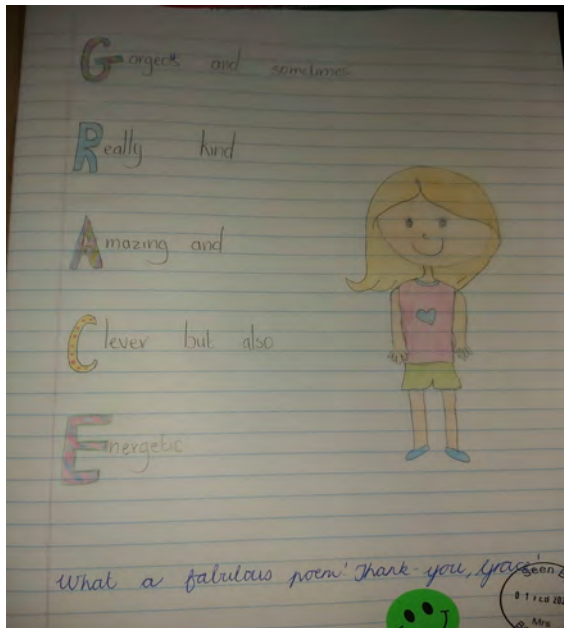 Gorgeos and sometimes
Really kind
Amazing and
Clever but also
Energetic
What a fabulous poem! Thank-you, Grace!
Seen
01 FEB 202
Mrs